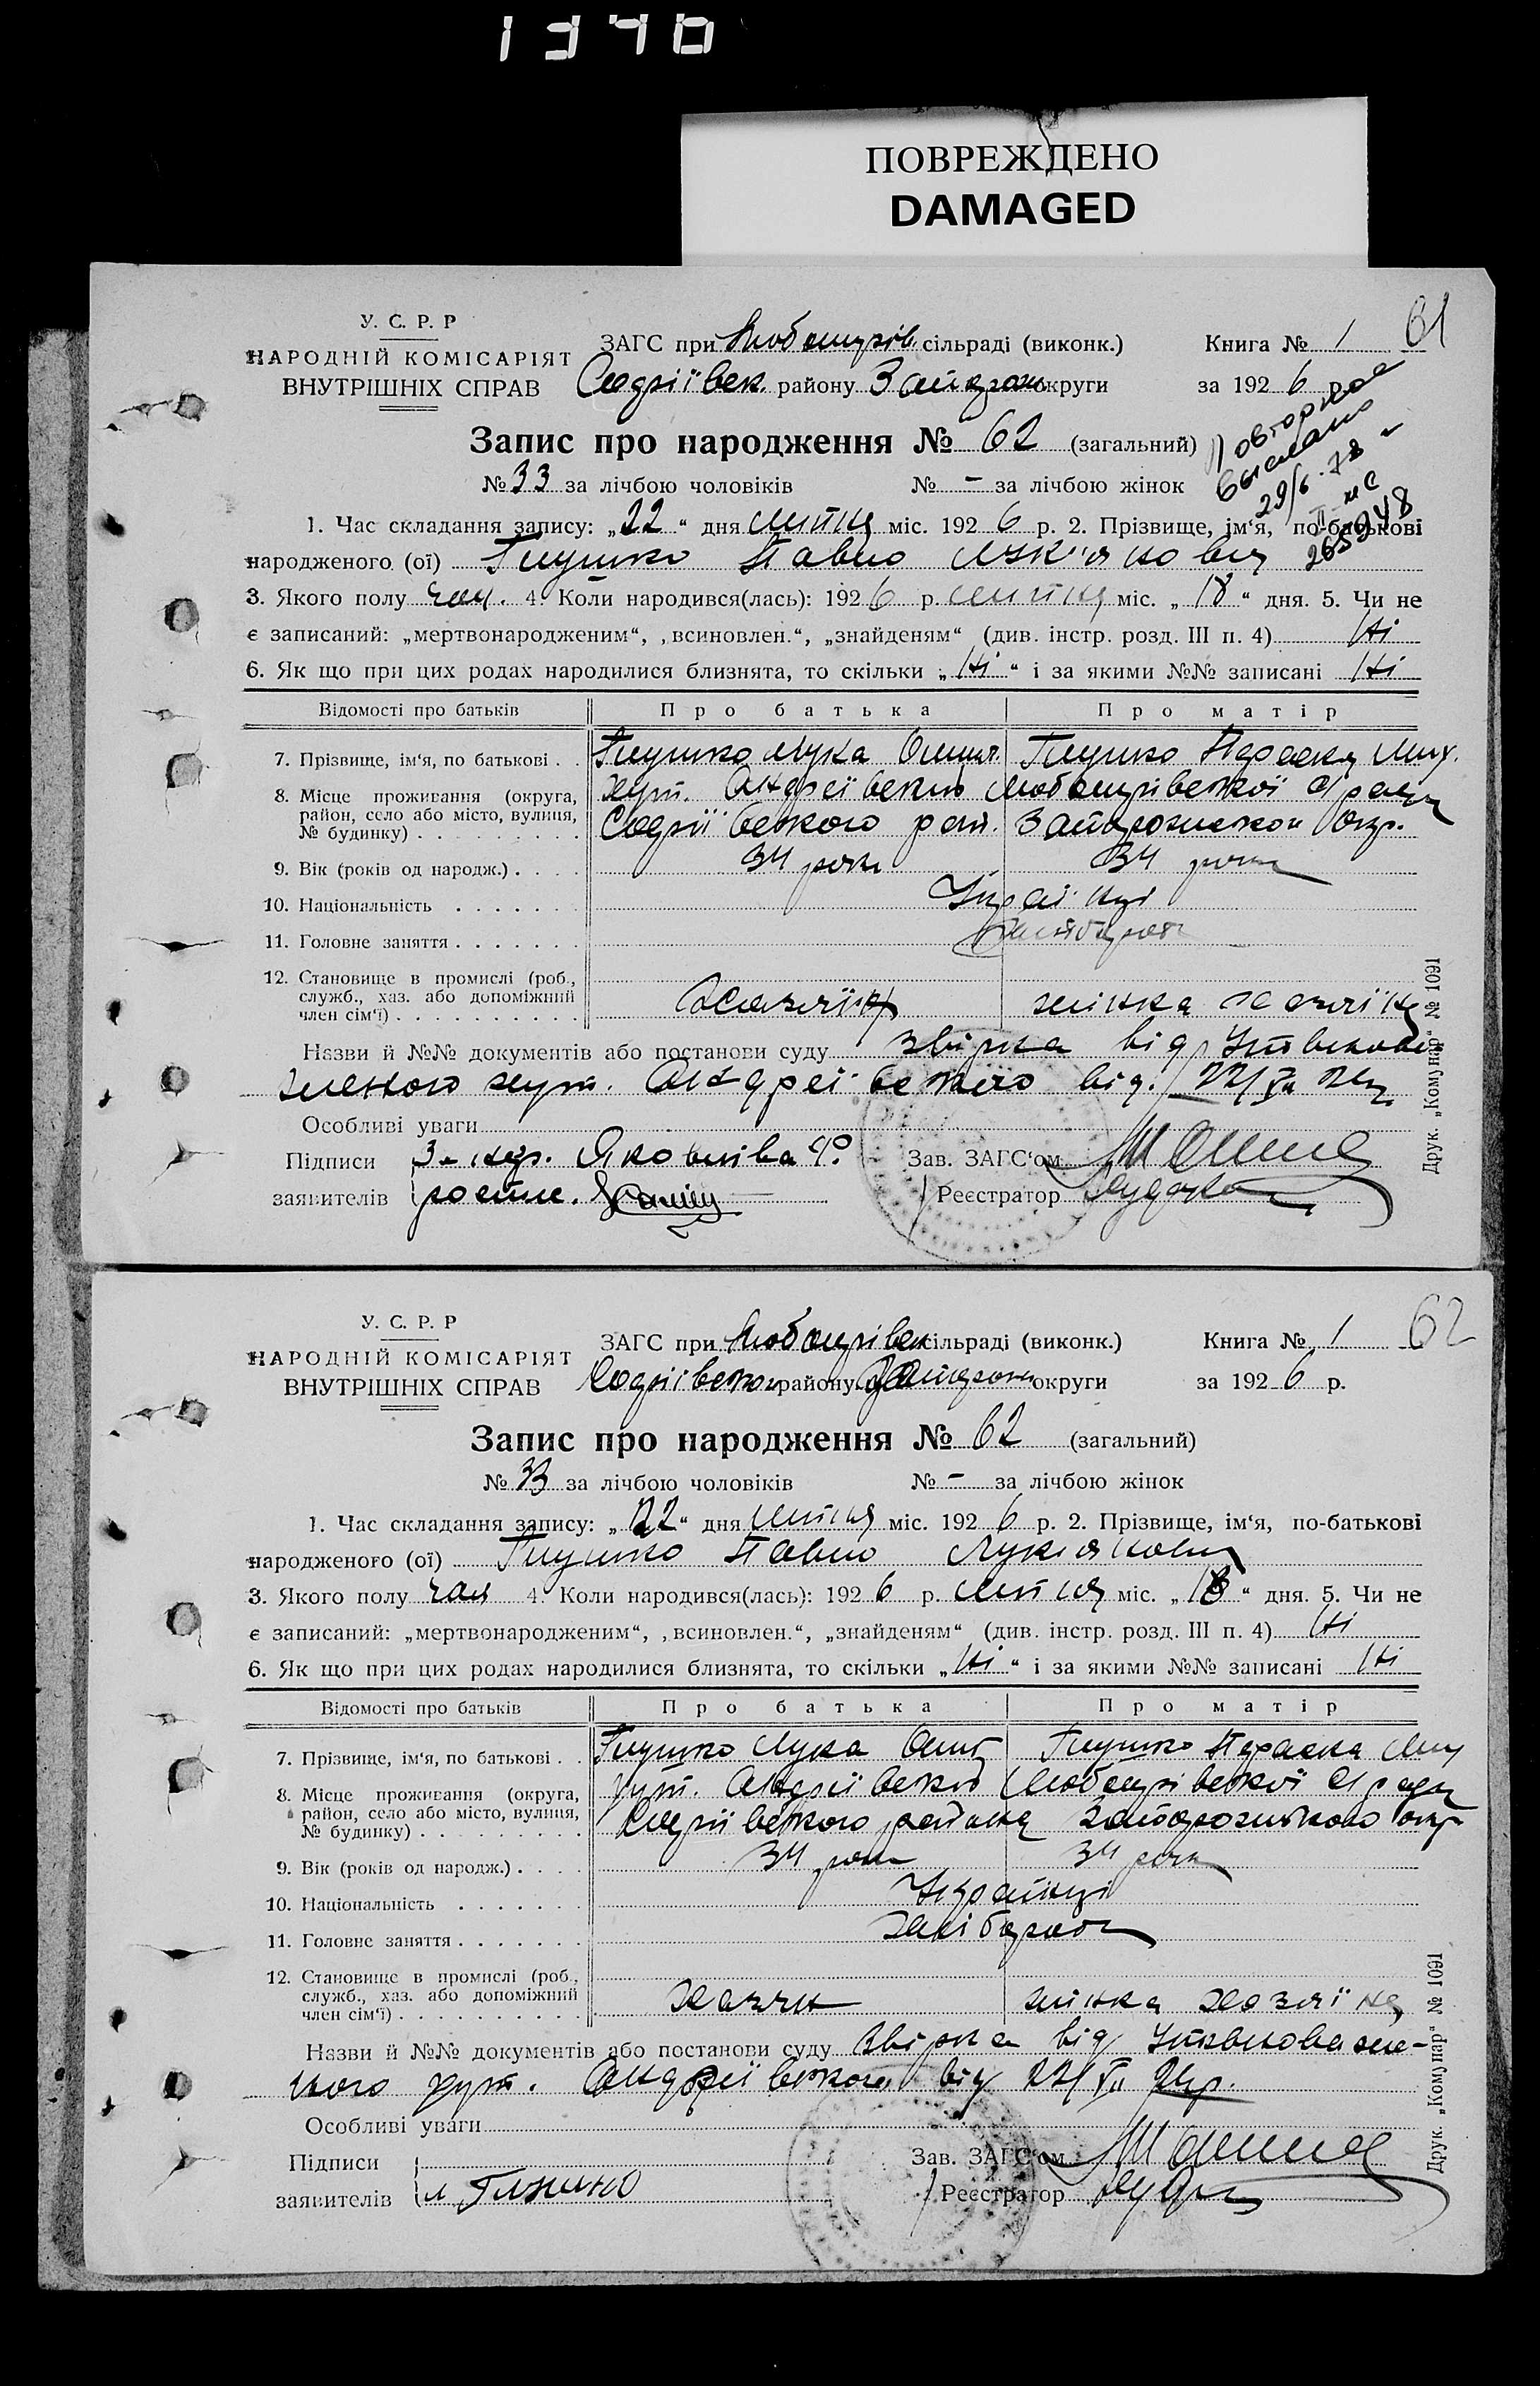 1340
ПОВРЕЖДЕНО
DAMAGED
У. С. Р. Р
НАРОДНІЙ КОМІСАРІЯТ
ВНУТРІШНІХ СПРАВ
ЗАГС при Любомирів. сільраді (виконк.)
Софіївск. району Запорож округи
Книга № 1
61
за 1926 р.
Запис про народження № 62 (загальний)
Повторное
выслано
29/6.78
II-ЖС
265948
№ 33 за лічбою чоловіків № - за лічбою жінок
1. Час складання запису: „22“ дня липня міс. 1926 р. 2. Прізвище, ім‘я, по-батькові
народженого (ої) Глушко Павло
3. Якого полу чол. 4. Коли народився(лась): 1926 р. липня міс. „18“ дня. 5. Чи не
є записаний: „мертвонародженим“, „всиновлен.“, „знайденям“ (див. інстр. розд. III п. 4) Ні
6. Як що при цих родах народилися близнята, то скільки „Ні“ і за якими №№ записані Ні
Відомості про батьків
Про батька
Про матір
7. Прізвище, ім‘я, по батькові . . Глушко Лука Глушко Параска Мих.
8. Місце проживання (округа, район, село або місто, вулиця, № будинку) . . . . . . . . .
хут. Андреївській Любомирівської с/ради
Софіївського рай. Запорожської окр.
9. Вік (років од народж.) . . . . 34 роки 34 роки
10. Національність . . . . . . Українці
11. Головне заняття . . . . . . . Хлібороби
12. Становище в промислі (роб., служб., хаз. або допоміжний член сім‘ї) . . . . . . . . . .
Хазяїн жінка хазяїна
Назви й №№ документів або постанови суду звірка від Уповнова
женого хут. Андреївського від. 22/VII 26р
Особливі уваги
Підписи
заявителів
Зав. ЗАГС‘ом
Реєстратор
Друк. „Комунар“ № 1091
У. С. Р. Р
НАРОДНІЙ КОМІСАРІЯТ
ВНУТРІШНІХ СПРАВ
ЗАГС при Любомирівск сільраді (виконк.)
Софіївського району Запорож округи
Книга № 1
62
за 1926 р.
Запис про народження № 62 (загальний)
№ 33 за лічбою чоловіків № - за лічбою жінок
1. Час складання запису: „22“ дня липня міс. 1926 р. 2. Прізвище, ім‘я, по-батькові
народженого (ої) Глушко Павло Лукіянович
3. Якого полу чол 4. Коли народився(лась): 1926 р. липня міс. „18“ дня. 5. Чи не
є записаний: „мертвонародженим“, „всиновлен.“, „знайденям“ (див. інстр. розд. III п. 4) Ні
6. Як що при цих родах народилися близнята, то скільки „Ні“ і за якими №№ записані Ні
Відомості про батьків
Про батька
Про матір
7. Прізвище, ім‘я, по батькові . . Глушко Лука Глушко Параска Мих
8. Місце проживання (округа, район, село або місто, вулиця, № будинку) . . . . . . . . .
хут. Андреївській Любомирівської с/ради
Софіївського району Запорожського окр
9. Вік (років од народж.) . . . . 34 роки 34 роки
10. Національність . . . . . . . Українці
11. Головне заняття . . . . . . . Хлібороби
12. Становище в промислі (роб., служб., хаз. або допоміжний член сім‘ї) . . . . . . . . . .
Хазяїн жінка хозяїна
Назви й №№ документів або постанови суду звірка від Уповноваже-
ного хут. Андреївського від 22/VII 26р.
Особливі уваги
Підписи
заявителів
Зав. ЗАГС‘ом
Реєстратор
Друк. „Комунар“ № 1091